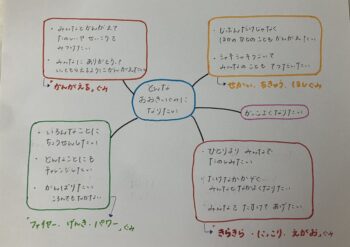 ・みんなとかんがえて
たのしいがせいこうを
みつけたい
・みんなに ありがとう。と
いってもらえるようにかんがえたい
"かんがえる。ぐみ
じぶんだけじゃなく
ほかの
のことも かんがえたい
・シャキシャキうごいて
みんなのこと
せかい、ちきゅう、ほしぐみ
どんな
おおきいぐみに
なりたい
かっこよくなりたい
・いろんなことに
ちょうせんしたい
・どんなことにも
チャレンジしたい
・がんばりたい
ころんでもなかない
"ファイヤー、げんき、パワー、ぐみ
・ひとりより みんなで
たのしみたい
みんなとなかよくなりたい
・みんなを たすけて あげたい
"きらきら・にっこり、えがお、ぐみ